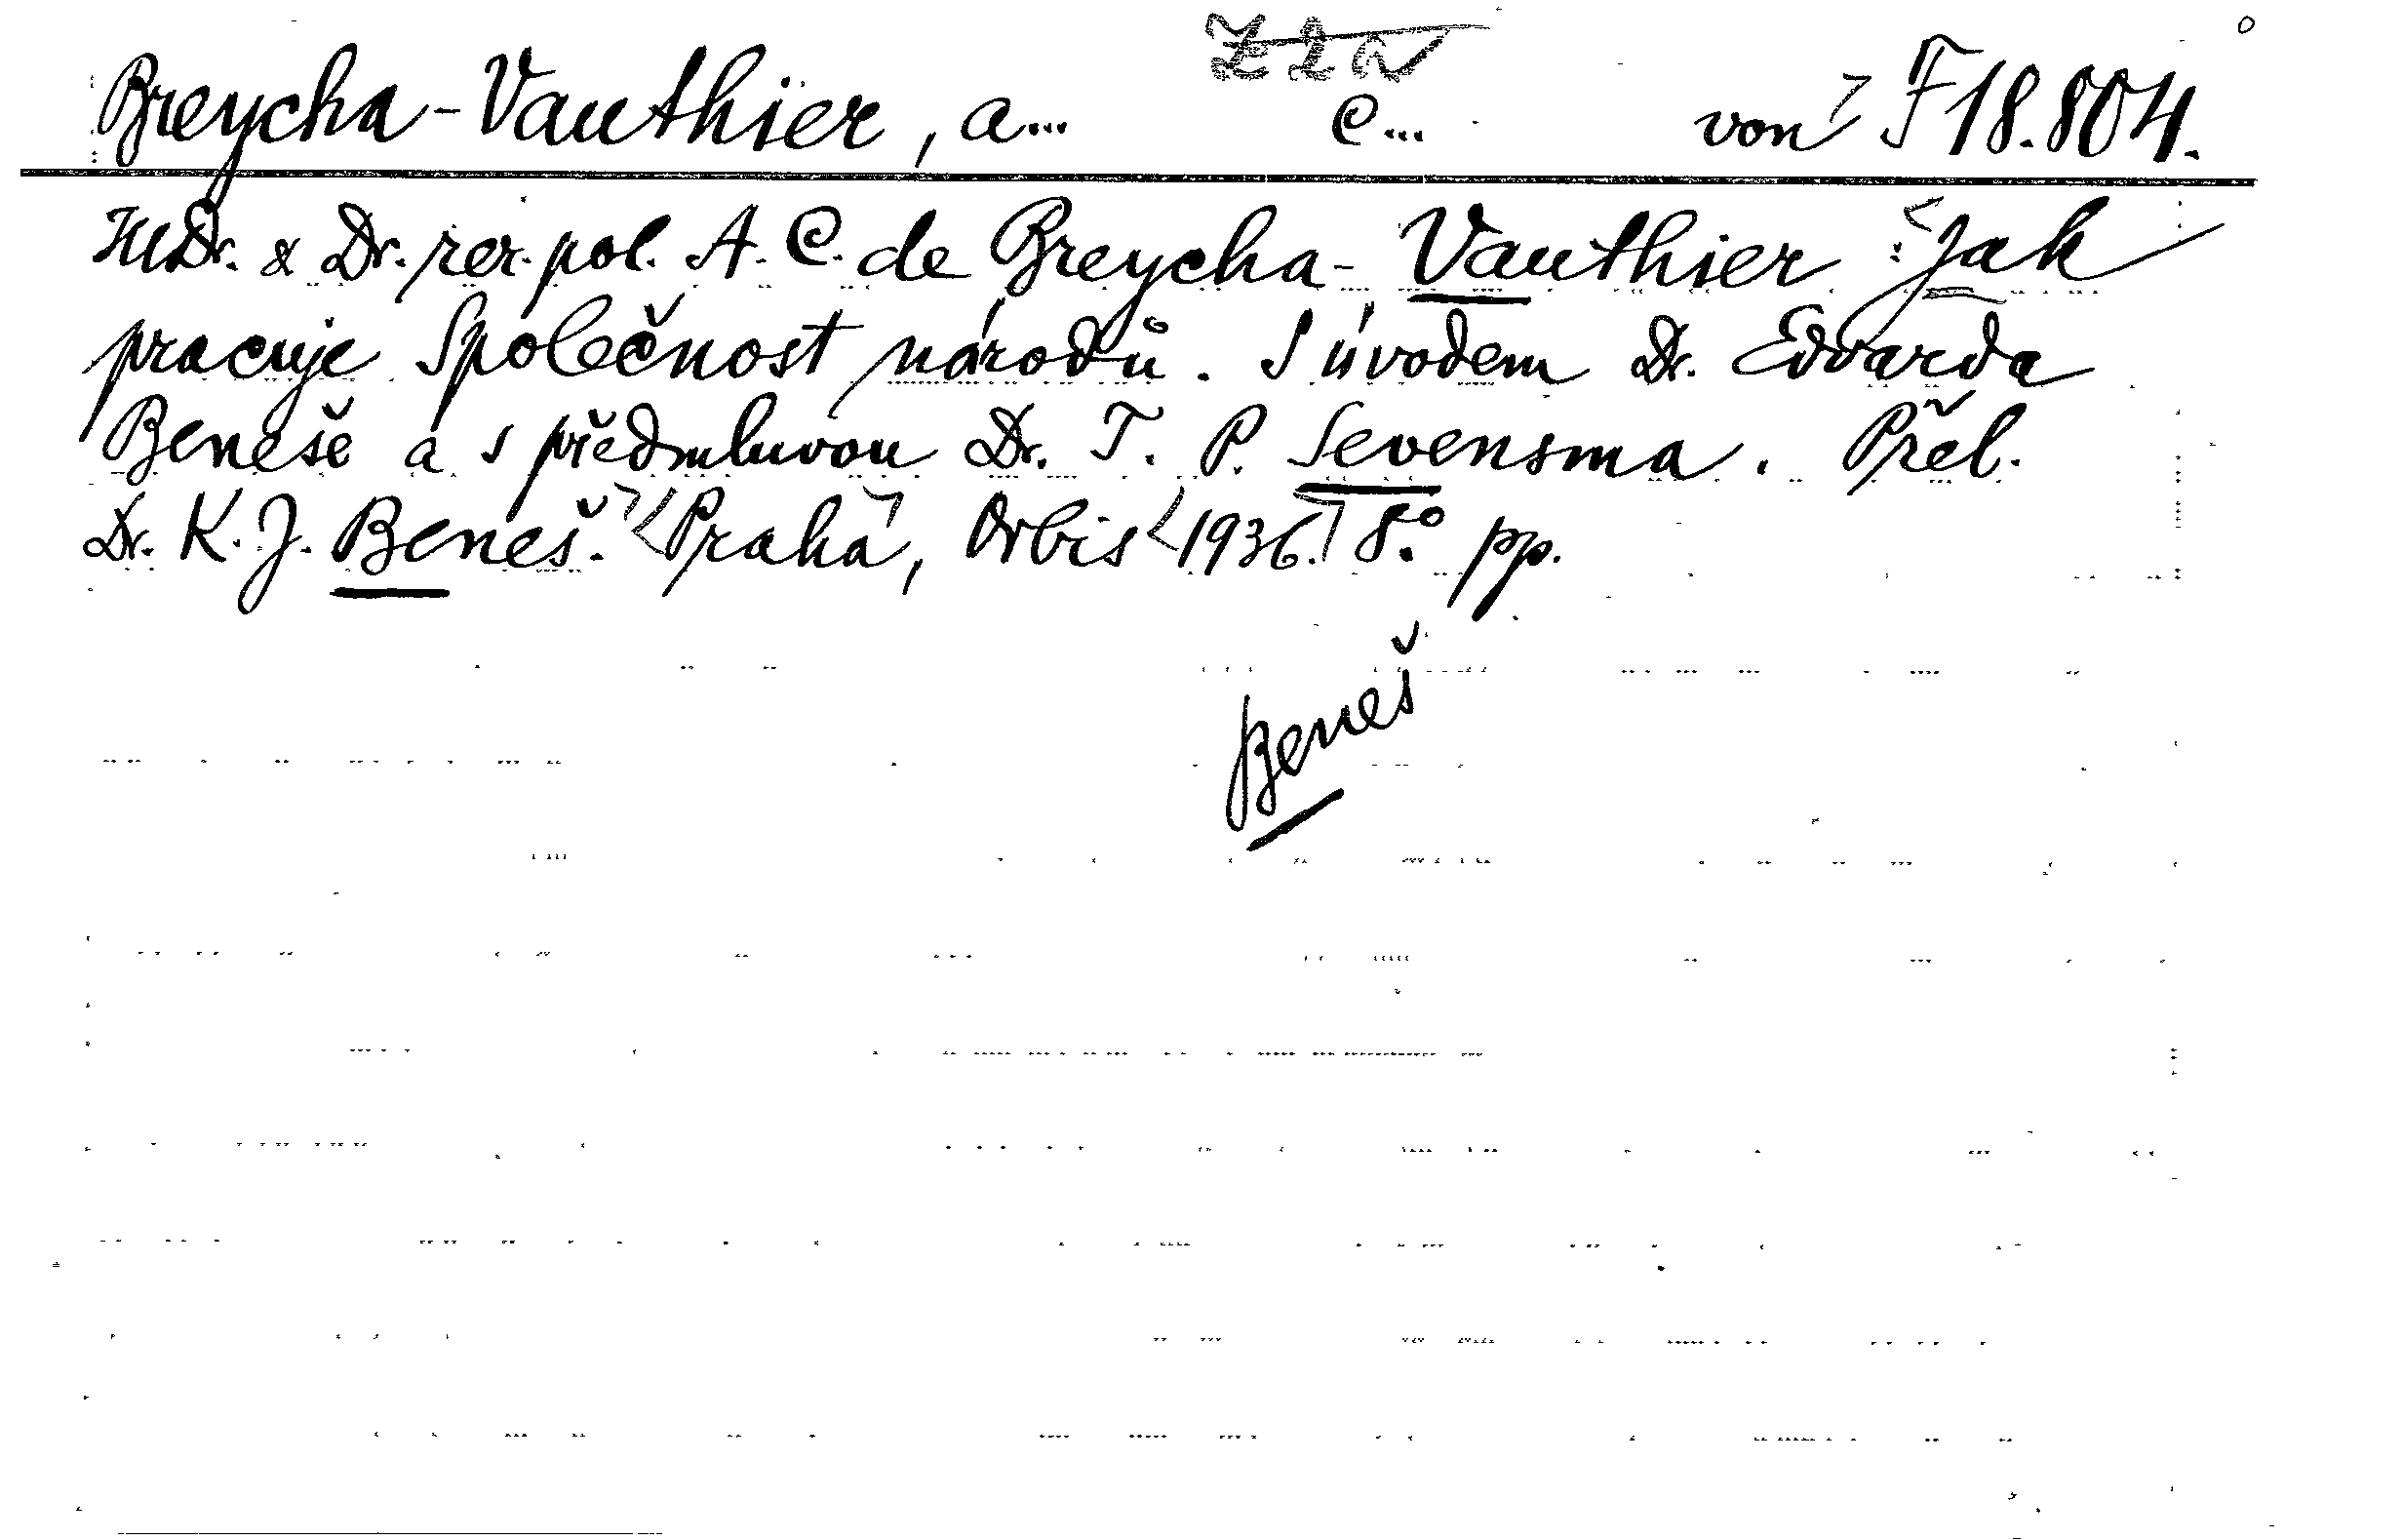 Breycha-Vauthier, a... c... von F 18.804.
JUDr. & Dr. rer. pol. A. C. de Breycha-Vauthier: Jak
pracuje Společnost národů. S úvodem Dr. Edvarda
Beneše a s předmluvou Dr. T. P. Sevensma. Přel.
Dr. K. J. Beneš. Praha, Orbis 1936. 8.° pp.
Beneš